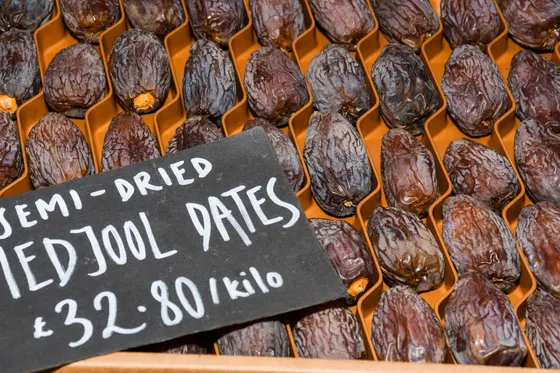 SEMI-DRIED
MEDJOOL DATES
£32.80/kilo